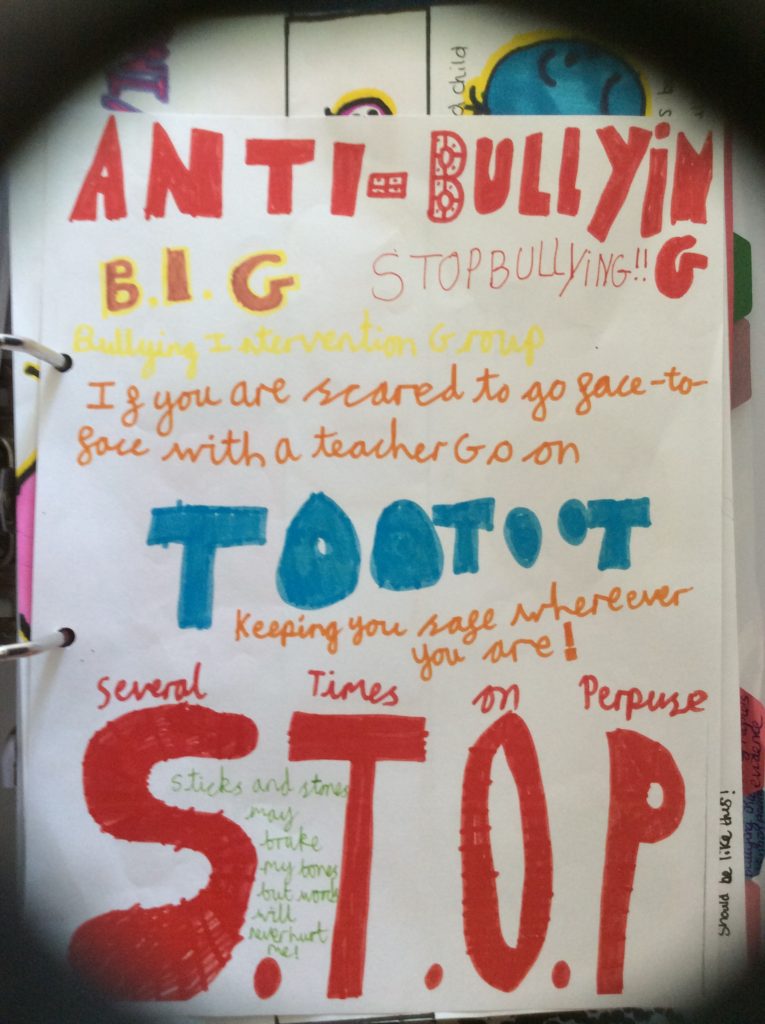 ANTI-BULLYING
B.I.G
STOPBULLYING!!
Bullying Intervention Group
If you are scared to go face-to-
face with a teacher Go on
TOOTOOT
Keeping you safe whereever
you are!
Several Times on Perpuse
S.T.O.P
sticks and stones
may
brake
my bones
but words
will
never hurt
me!
should be like this!
child
evidence